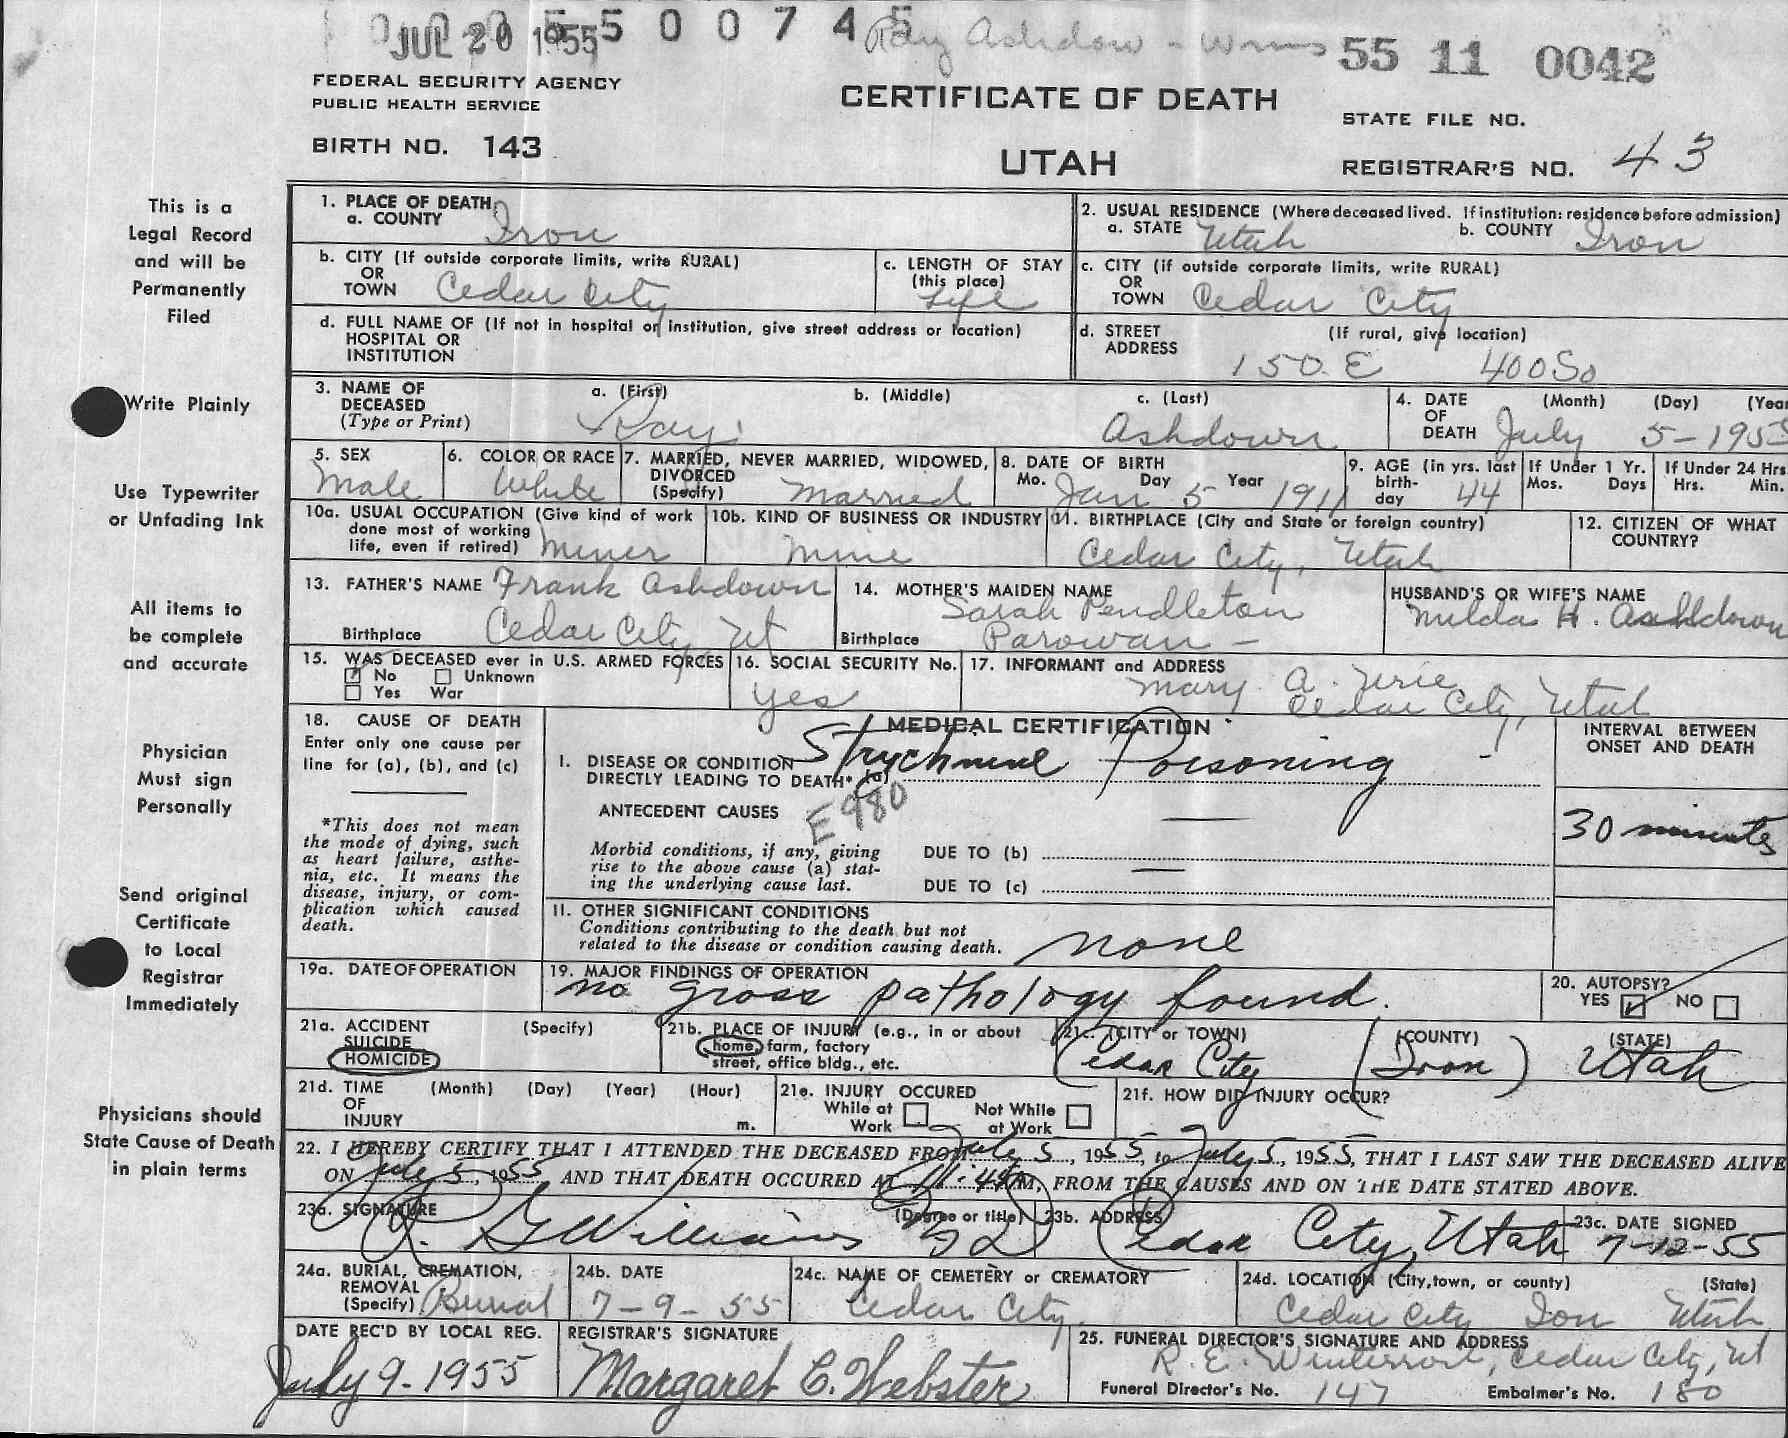 JUL 20 1955 5 5 0 0 7 4 5 Ray Ashdow - Wms 55 11 0042
FEDERAL SECURITY AGENCY
PUBLIC HEALTH SERVICE
CERTIFICATE OF DEATH
STATE FILE NO.
BIRTH NO. 143
UTAH
REGISTRAR'S NO. 43
This is a
Legal Record
and will be
Permanently
Filed
Write Plainly
Use Typewriter
or Unfading Ink
All items to
be complete
and accurate
Physician
Must sign
Personally
Send original
Certificate
to Local
Registrar
Immediately
Physicians should
State Cause of Death
in plain terms
1. PLACE OF DEATH
a. COUNTY Iron
2. USUAL RESIDENCE (Where deceased lived. If institution: residence before admission)
a. STATE Utah b. COUNTY Iron
b. CITY (If outside corporate limits, write RURAL)
OR
TOWN Cedar City
c. LENGTH OF STAY
(this place)
Life
c. CITY (if outside corporate limits, write RURAL)
OR
TOWN Cedar City
d. FULL NAME OF (If not in hospital or institution, give street address or location)
HOSPITAL OR
INSTITUTION
d. STREET (If rural, give location)
ADDRESS 150 E 400 So
3. NAME OF
DECEASED
(Type or Print)
a. (First) b. (Middle) c. (Last)
Ray Ashdown
4. DATE (Month) (Day) (Year
OF
DEATH July 5-1955
5. SEX
Male
6. COLOR OR RACE
White
7. MARRIED, NEVER MARRIED, WIDOWED,
DIVORCED
(Specify) Married
8. DATE OF BIRTH
Mo. Day Year
Jan 5 1911
9. AGE (in yrs. last
birth-
day 44
If Under 1 Yr.
Mos. Days
If Under 24 Hrs
Hrs. Min.
10a. USUAL OCCUPATION (Give kind of work
done most of working
life, even if retired) Miner
10b. KIND OF BUSINESS OR INDUSTRY
Mine
11. BIRTHPLACE (City and State or foreign country)
Cedar City, Utah
12. CITIZEN OF WHAT
COUNTRY?
13. FATHER'S NAME Frank Ashdown
Birthplace Cedar City Ut
14. MOTHER'S MAIDEN NAME
Sarah Pendleton
Birthplace Parowan -
HUSBAND'S OR WIFE'S NAME
Milda H. Ashdown
15. WAS DECEASED ever in U.S. ARMED FORCES
No Unknown
Yes War
16. SOCIAL SECURITY No.
yes
17. INFORMANT and ADDRESS
Mary A. Urie
Cedar City, Utah
18. CAUSE OF DEATH
Enter only one cause per
line for (a), (b), and (c)
*This does not mean
the mode of dying, such
as heart failure, asthe-
nia, etc. It means the
disease, injury, or com-
plication which caused
death.
MEDICAL CERTIFICATION
I. DISEASE OR CONDITION Strychnine Poisoning
DIRECTLY LEADING TO DEATH* (a)
ANTECEDENT CAUSES
E980
Morbid conditions, if any, giving
rise to the above cause (a) stat-
ing the underlying cause last.
DUE TO (b)
DUE TO (c)
INTERVAL BETWEEN
ONSET AND DEATH
30 minutes
II. OTHER SIGNIFICANT CONDITIONS
Conditions contributing to the death but not
related to the disease or condition causing death. none
19a. DATE OF OPERATION
19. MAJOR FINDINGS OF OPERATION
no gross pathology found.
20. AUTOPSY?
YES NO
21a. ACCIDENT (Specify)
SUICIDE
HOMICIDE
21b. PLACE OF INJURY (e.g., in or about
home, farm, factory
street, office bldg., etc.
21c. (CITY or TOWN) (COUNTY) (STATE)
Cedar City (Iron) Utah
21d. TIME (Month) (Day) (Year) (Hour)
OF
INJURY m.
21e. INJURY OCCURED
While at Work
Not While at Work
21f. HOW DID INJURY OCCUR?
22. I HEREBY CERTIFY THAT I ATTENDED THE DECEASED FROM July 5, 1955, to July 5, 1955, THAT I LAST SAW THE DECEASED ALIVE
ON July 5, 1955, AND THAT DEATH OCCURED AT M, FROM THE CAUSES AND ON THE DATE STATED ABOVE.
23a. SIGNATURE (Degree or title) 23b. ADDRESS 23c. DATE SIGNED
Williams MD Cedar City, Utah 7-12-55
24a. BURIAL, CREMATION,
REMOVAL
(Specify) Burial
24b. DATE
7-9-55
24c. NAME OF CEMETERY or CREMATORY
Cedar City
24d. LOCATION (City, town, or county) (State)
Cedar City Ion Utah
DATE REC'D BY LOCAL REG.
July 9-1955
REGISTRAR'S SIGNATURE
Margaret C. Webster
25. FUNERAL DIRECTOR'S SIGNATURE AND ADDRESS
R. E. Cedar City, Ut
Funeral Director's No. 147 Embalmer's No. 180